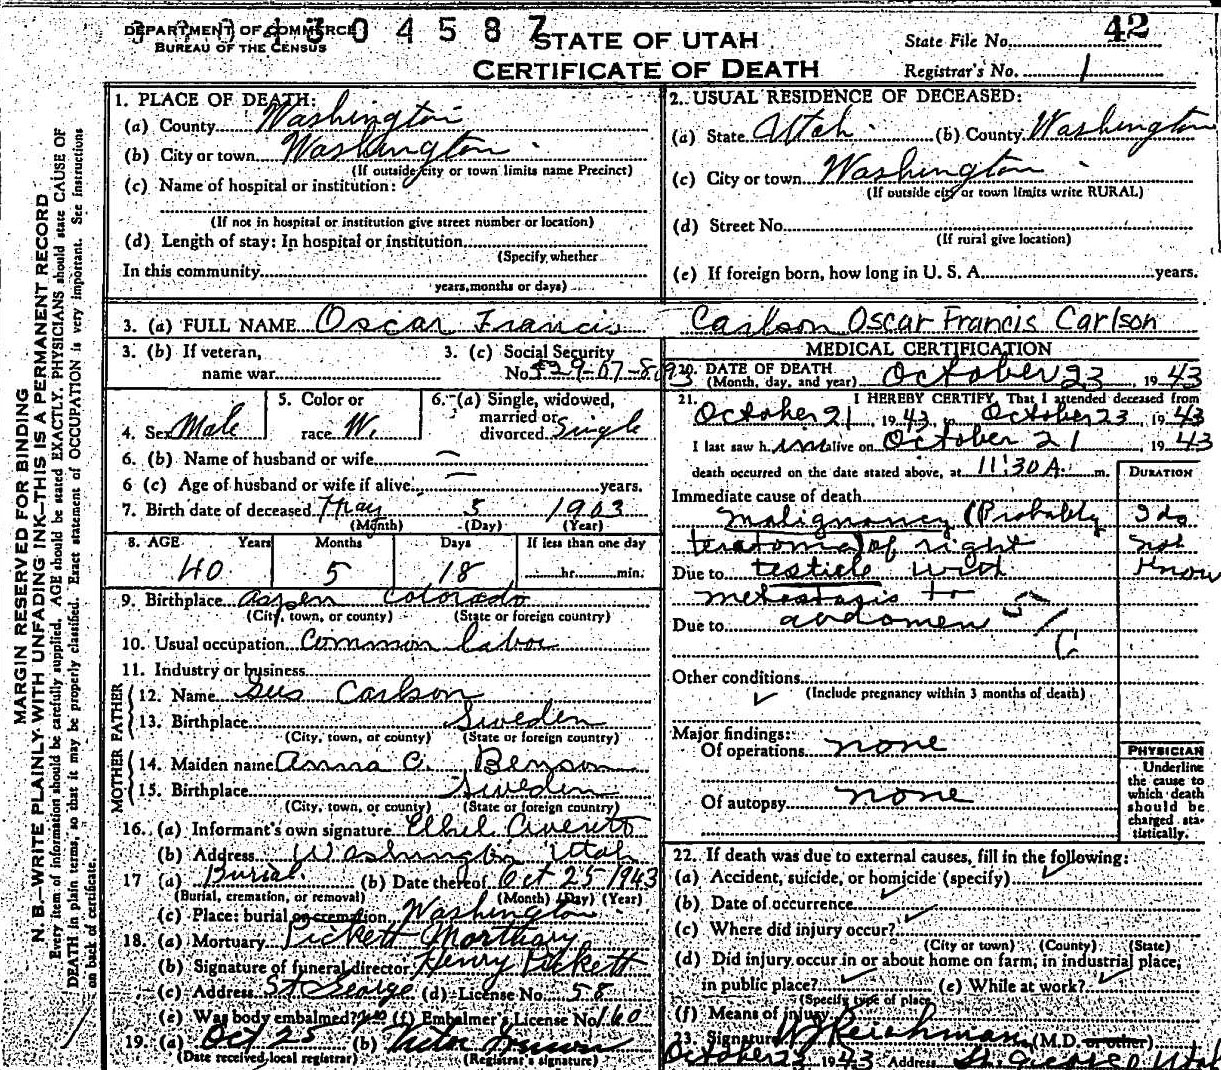 DEPARTMENT OF COMMERCE
BUREAU OF THE CENSUS
304587
STATE OF UTAH
CERTIFICATE OF DEATH
State File No. 42
Registrar's No. 1
MARGIN RESERVED FOR BINDING
N. B.—WRITE PLAINLY WITH UNFADING INK—THIS IS A PERMANENT RECORD
Every item of information should be carefully supplied. AGE should be stated EXACTLY. PHYSICIANS should state CAUSE OF
DEATH in plain terms, so that it may be properly classified. Exact statement of OCCUPATION is very important. See instructions
on back of certificate.
1. PLACE OF DEATH:
(a) County Washington
(b) City or town Washington
(If outside city or town limits name Precinct)
(c) Name of hospital or institution:
(If not in hospital or institution give street number or location)
(d) Length of stay: In hospital or institution
(Specify whether
In this community
years, months or days)
2. USUAL RESIDENCE OF DECEASED:
(a) State Utah (b) County Washington
(c) City or town Washington
(If outside city or town limits write RURAL)
(d) Street No.
(If rural give location)
(e) If foreign born, how long in U. S. A. years.
3. (a) FULL NAME Oscar Francis Carlson Oscar Francis Carlson
3. (b) If veteran,
name war
3. (c) Social Security
No. 529-07-8093
4. Sex Male
5. Color or
race W.
6. (a) Single, widowed,
married or
divorced Single
6. (b) Name of husband or wife —
6 (c) Age of husband or wife if alive — years.
7. Birth date of deceased May 5 1903
(Month) (Day) (Year)
8. AGE Years Months Days If less than one day
40 5 18 hr. min.
9. Birthplace Aspen Colorado
(City, town, or county) (State or foreign country)
10. Usual occupation Common labor
11. Industry or business
FATHER
12. Name Gus Carlson
13. Birthplace Sweden
(City, town, or county) (State or foreign country)
MOTHER
14. Maiden name Anna C. Benson
15. Birthplace Sweden
(City, town, or county) (State or foreign country)
16. (a) Informant's own signature Ethel
(b) Address Washington Utah
17 (a) Burial (b) Date thereof Oct 25 1943
(Burial, cremation, or removal) (Month) (Day) (Year)
(c) Place: burial or cremation Washington
18. (a) Mortuary Pickett Mortuary
(b) Signature of funeral director Henry Pickett
(c) Address St George (d) License No. 58
(e) Was body embalmed? (f) Embalmer's License No. 160
19. (a) Oct 25 (b) Victor
(Date received local registrar) (Registrar's signature)
MEDICAL CERTIFICATION
20. DATE OF DEATH
(Month, day, and year) October 23, 1943
21. I HEREBY CERTIFY, That I attended deceased from
October 21, 1943 to October 23, 1943
I last saw him alive on October 21, 1943
death occurred on the date stated above, at 11:30 A. m.
DURATION
Immediate cause of death
Malignancy (Probably
teratoma) of right not
Due to testicle with Know
metastasis to
Due to abdomen
Other conditions
(Include pregnancy within 3 months of death)
Major findings:
Of operations none
Of autopsy none
PHYSICIAN
Underline
the cause to
which death
should be
charged sta-
tistically.
22. If death was due to external causes, fill in the following:
(a) Accident, suicide, or homicide (specify)
(b) Date of occurrence
(c) Where did injury occur?
(City or town) (County) (State)
(d) Did injury occur in or about home on farm, in industrial place,
in public place? (e) While at work?
(Specify type of place
(f) Means of injury
23. Signature Reichman (M.D. or other)
October 23, 1943 Address St. George Utah